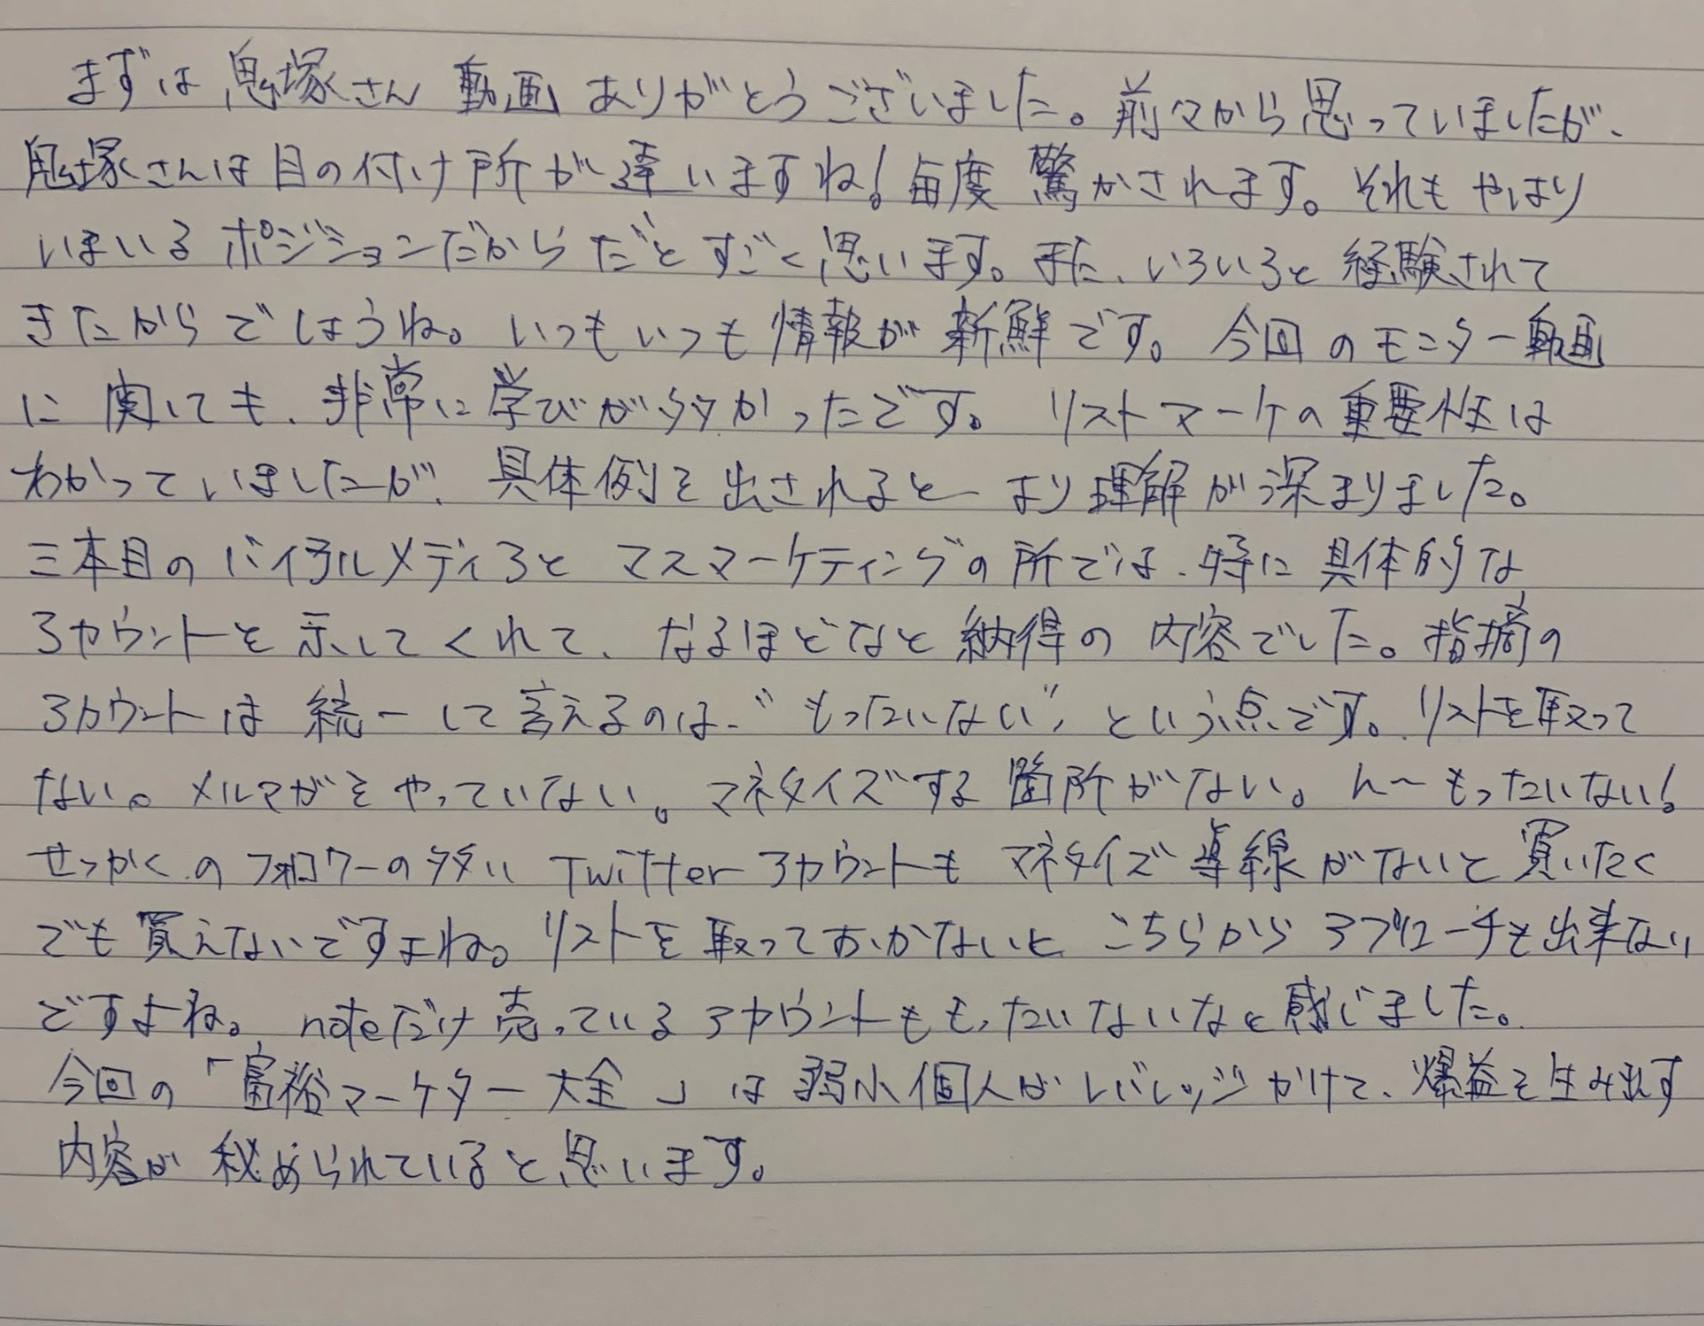 まずは鬼塚さん動画ありがとうございました。前々から思っていましたが、
鬼塚さんは目の付け所が違いますね!毎度驚かされます。それもやはり
いまいるポジションだからだとすごく思います。また、いろいろと経験されて
きたからでしょうね。いつもいつも情報が新鮮です。今回のモニター動画
に関しても、非常に学びが多かったです。リストマーケの重要性は
わかっていましたが、具体例を出されると より理解が深まりました。
三本目のバイラルメディアとマスマーケティングの所では、特に具体的な
アカウントを示してくれて、なるほどなと納得の内容でした。指摘の
アカウントは統一して言えるのは、"もったいない"という点です。リストを取って
ない。メルマガをやっていない。マネタイズする箇所がない。ん〜もったいない!
せっかくのフォロワーの多いTwitterアカウントもマネタイズ導線がないと買いたく
でも買えないですよね。リストを取っておかないとこちらからアプローチも出来ない
ですよね。noteだけ売っているアカウントももったいないなと感じました。
今回の「富裕マーケター大全」は弱小個人がレバレッジかけて、爆益を生み出す
内容が秘められていると思います。